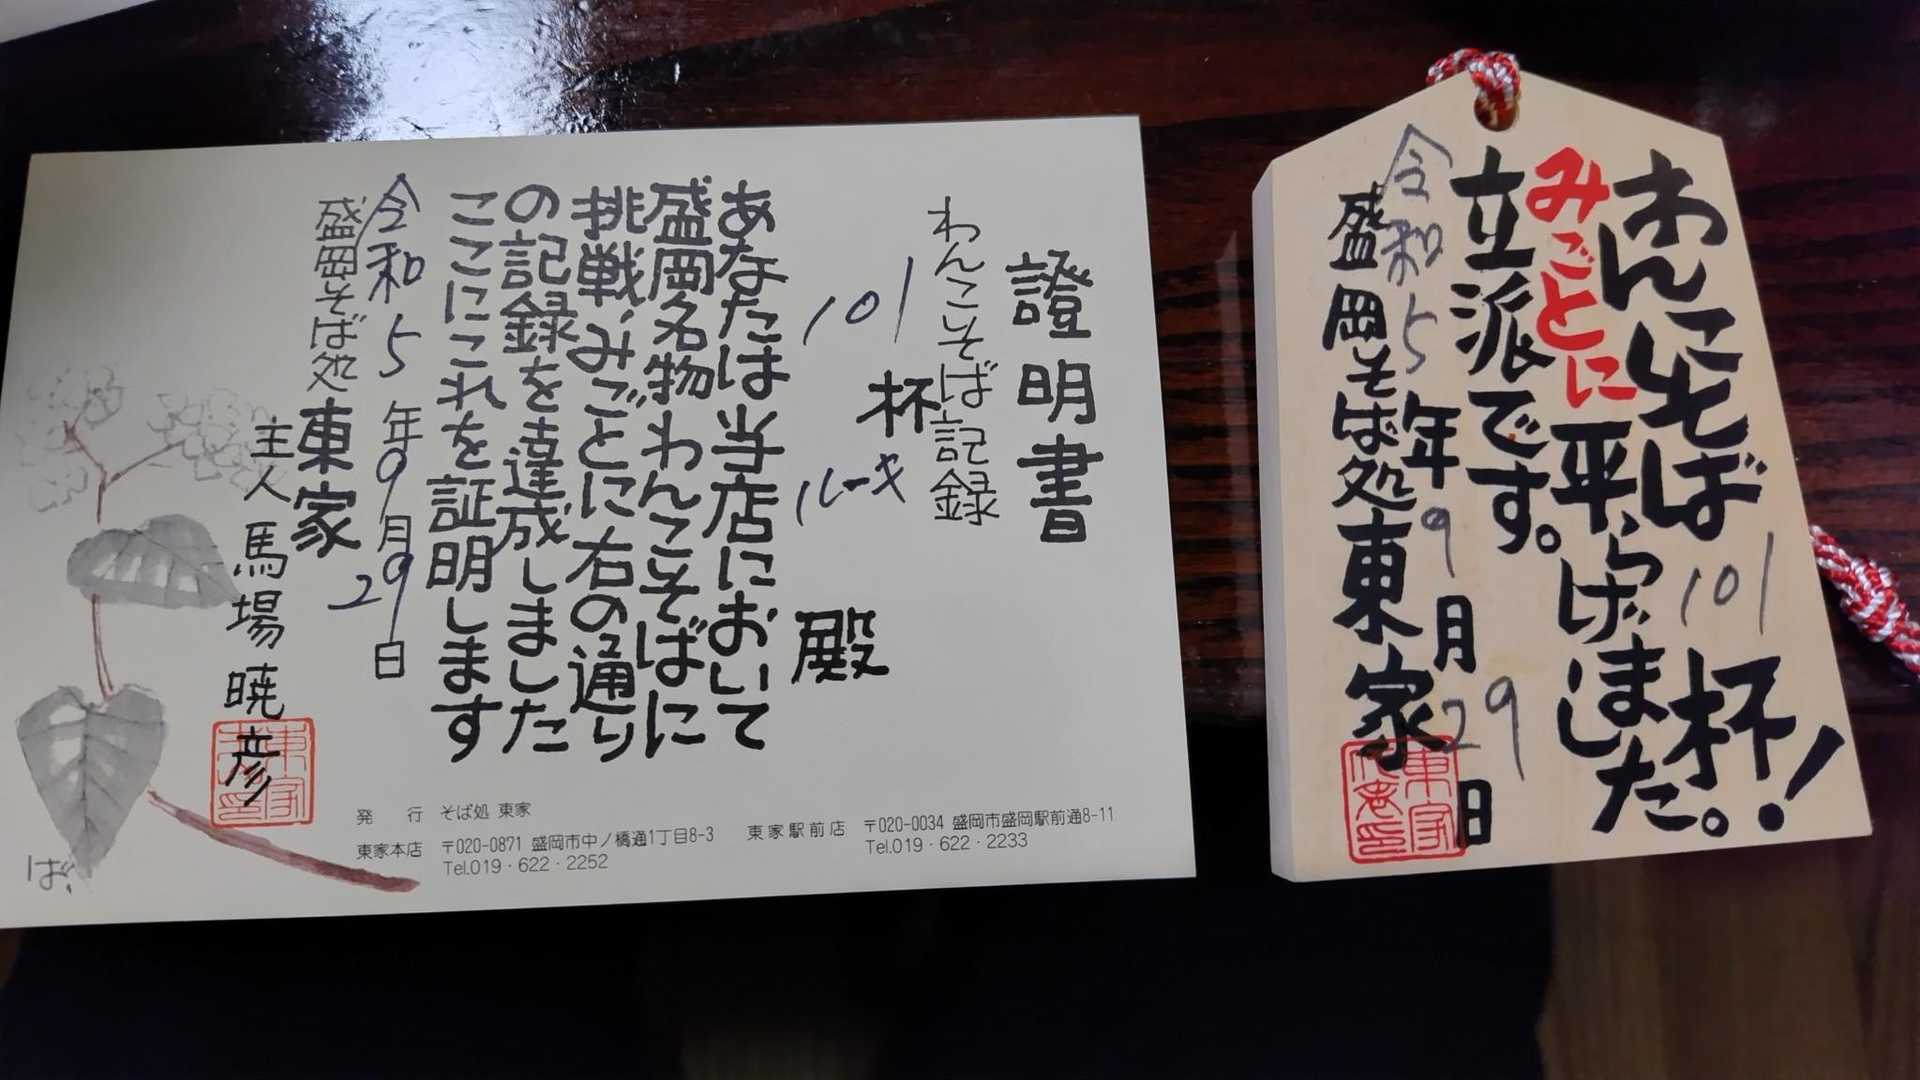 證明書
わんこそば記録
101杯
ルーキ 殿
あなたは当店において
盛岡名物わんこそばに
挑戦、みごとに右の通り
の記録を達成しました
ここにこれを証明します
令和5年9月29日
盛岡そば処 東家
主人 馬場暁彦
ば
発 行 そば処 東家
東家本店 〒020-0871 盛岡市中ノ橋通1丁目8-3
Tel.019・622・2252
東家駅前店 〒020-0034 盛岡市盛岡駅前通8-11
Tel.019・622・2233
わんこそば101杯!
みごとに平らげました。
立派です。
令和5年9月29日
盛岡そば処東家